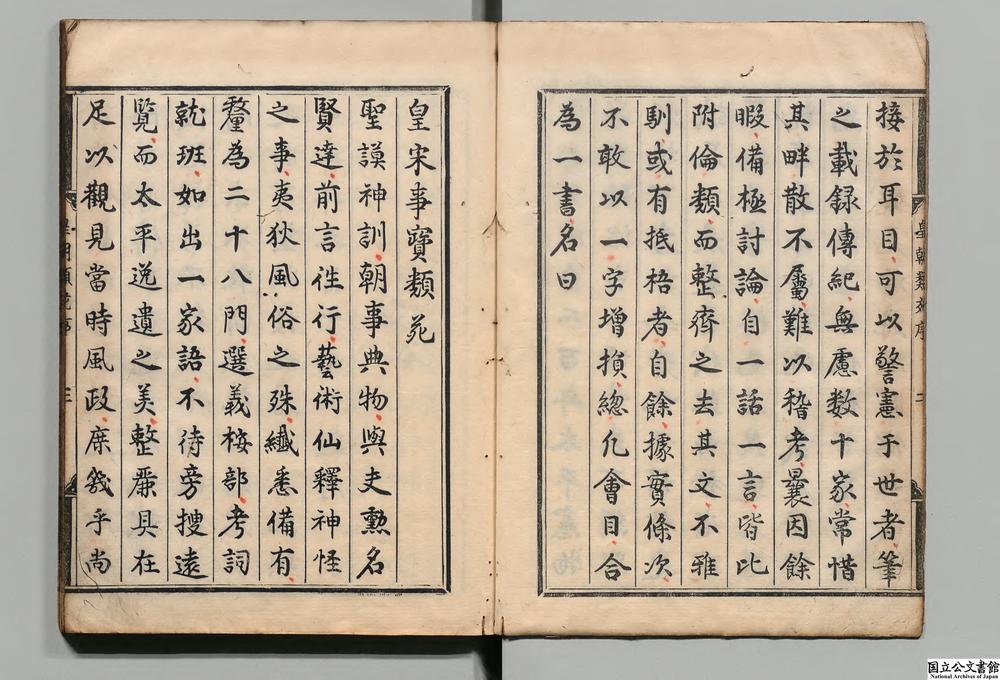 接於耳目可以警憲于世者筆
之載録傳紀無慮数十家常惜
其畔散不屬難以稽考曩因餘
暇備極討論自一話一言皆比
附倫類而整齊之去其文不雅
馴或有抵梧者自餘據實條次
不敢以一字增損總凡會目合
為一書名曰
皇宋事寶類苑
聖謨神訓朝事典物與夫勲名
賢達前言徃行藝術仙釋神怪
之事夷狄風俗之殊纎悉備有
釐為二十八門選義桉部考詞
就班如出一家語不待旁搜遠
覧而太平逸遺之美整厤具在
足以觀見當時風政庶幾乎尚
皇朝類苑序
二
三
国立公文書館
National Archives of Japan